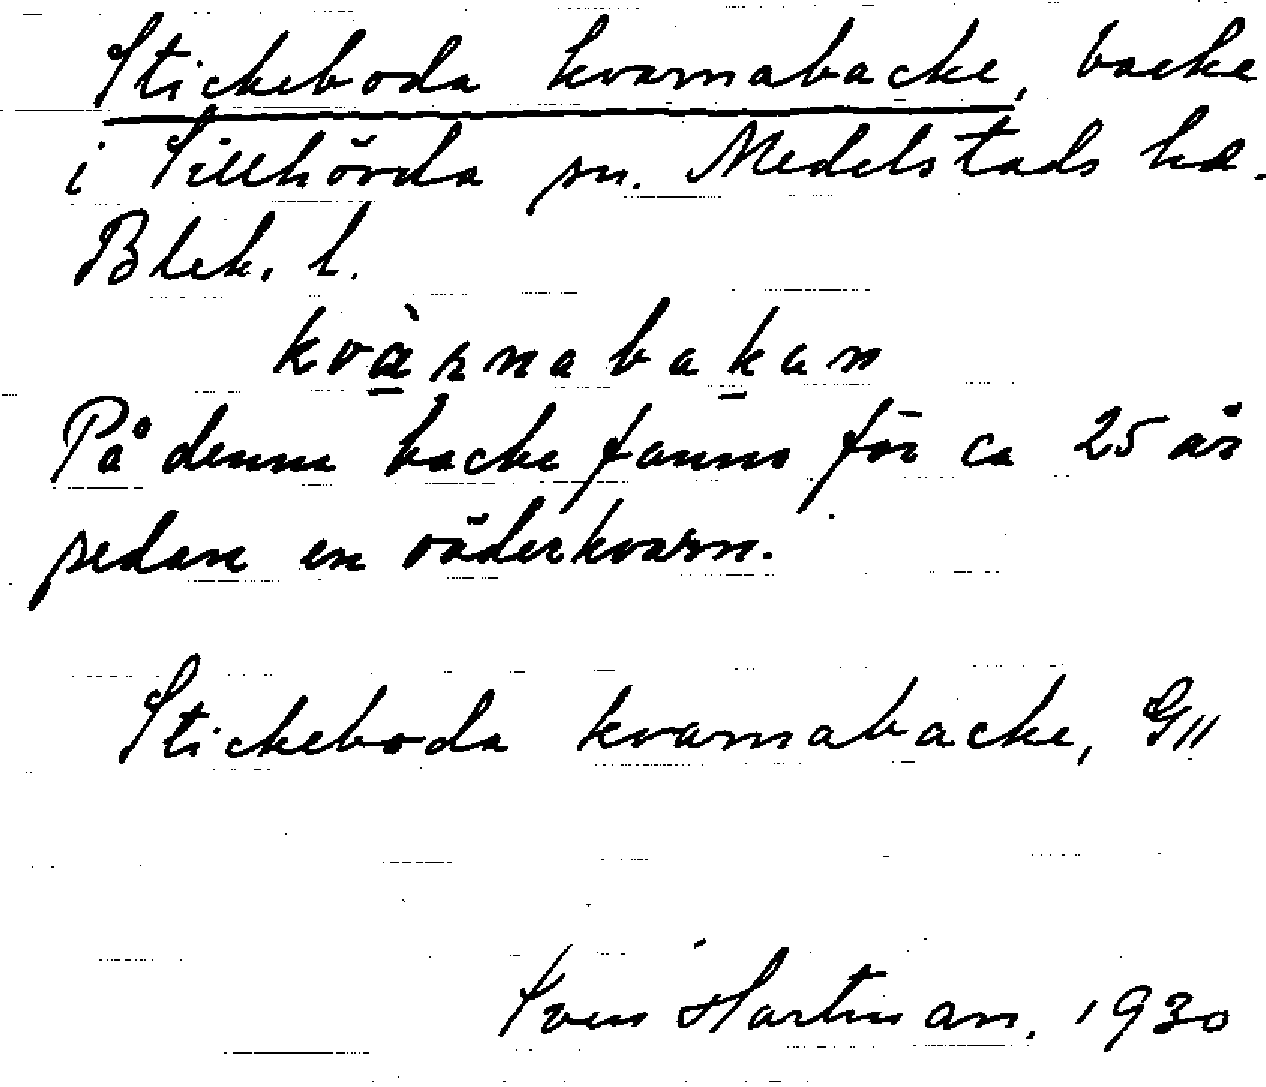 Stickeboda kvarnabacke, backe
i Sillhövda sn. Medelstads hd.
Blek. l.
kvàrnabakan
På denna backe fanns för ca 25 år
sedan en väderkvarn.
Stickeboda kvarnabacke, G11
Sven Hartman. 1930